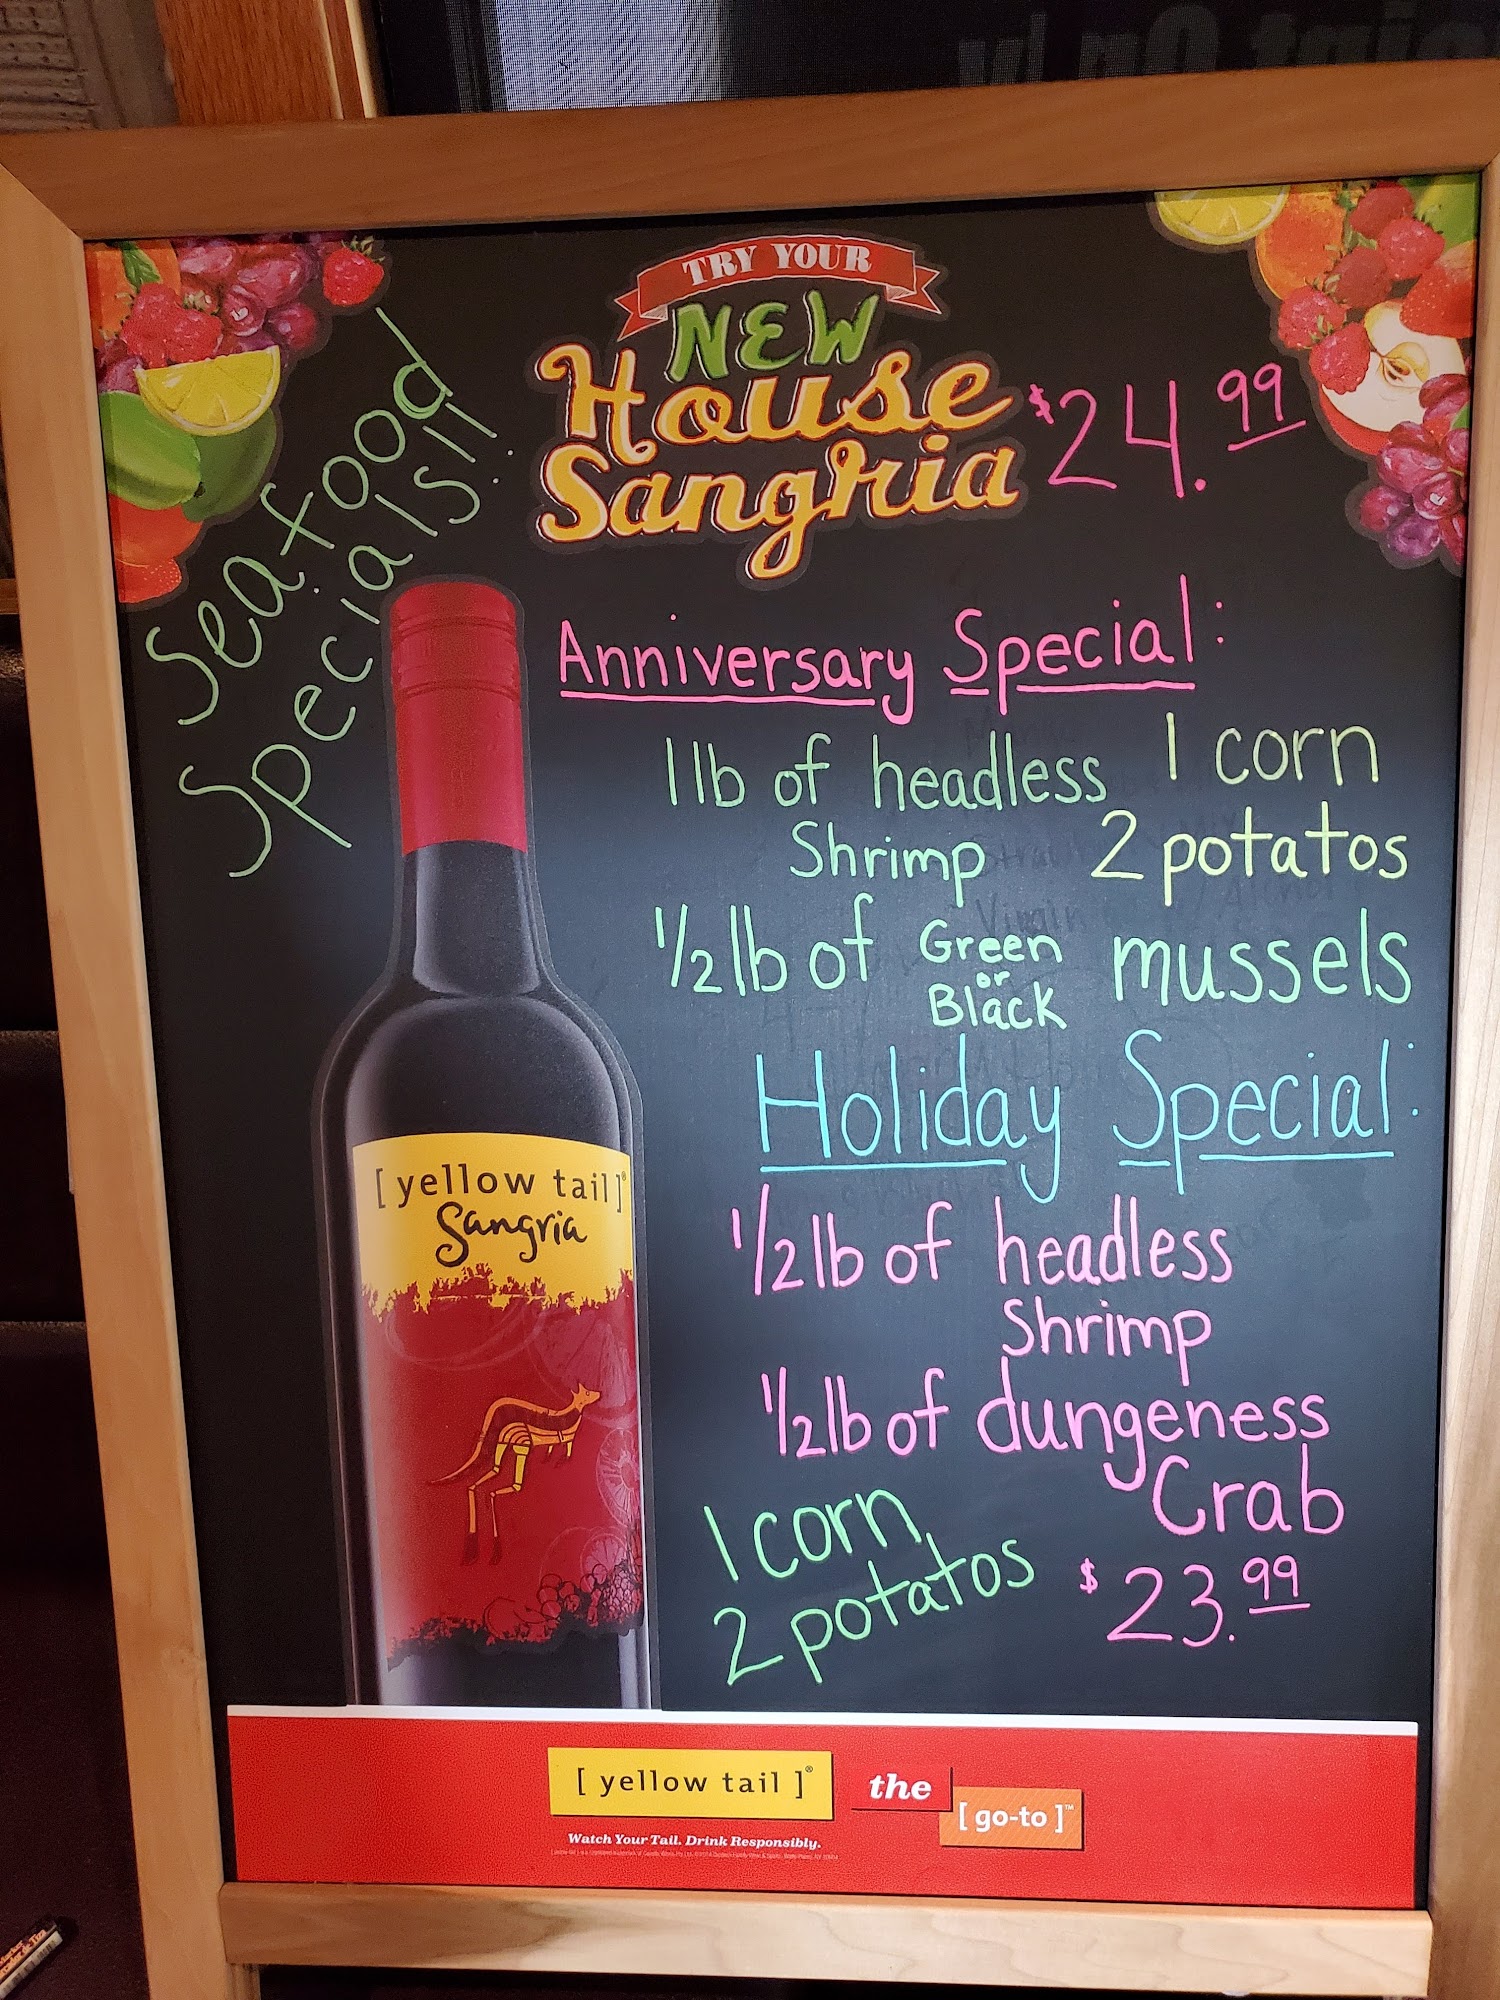 TRY YOUR
NEW
House
Sangria
$24.99
Seafood
Specials!!
Anniversary Special:
1 lb of headless
Shrimp
1 corn
2 potatos
1/2 lb of Green or Black mussels
Holiday Special:
1/2 lb of headless
Shrimp
1/2 lb of dungeness
Crab
1 corn
2 potatos
$23.99
[ yellow tail ]®
Sangria
[ yellow tail ]®
the
[ go-to ]™
Watch Your Tail. Drink Responsibly.